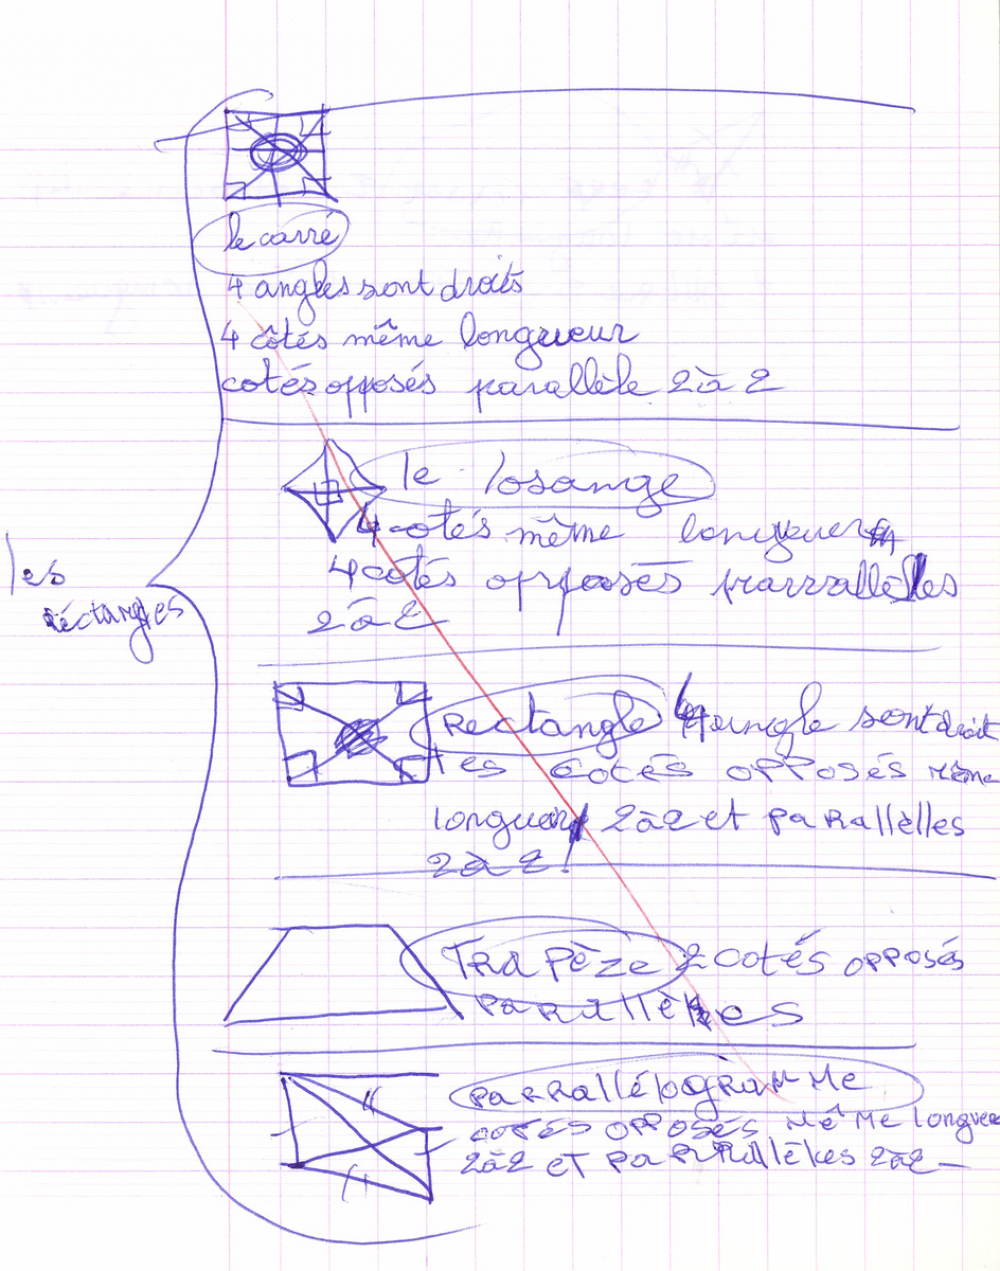 le carré
4 angles sont droits
4 côtés même longueur
cotés opposés parallèle 2 à 2
le losange
4 cotés même longueur
4 cotés opposés parrallèlles
2 à 2
les
réctangles
Rectangle 4 angle sont droit
les cotés opposés même
longueur 2 à 2 et parallèlles
2 à 2.
Trapèze 2 cotés opposés
parallèles
parrallélogramme
cotés opposés même longueu
2 à 2 et parrallèles 2 à 2